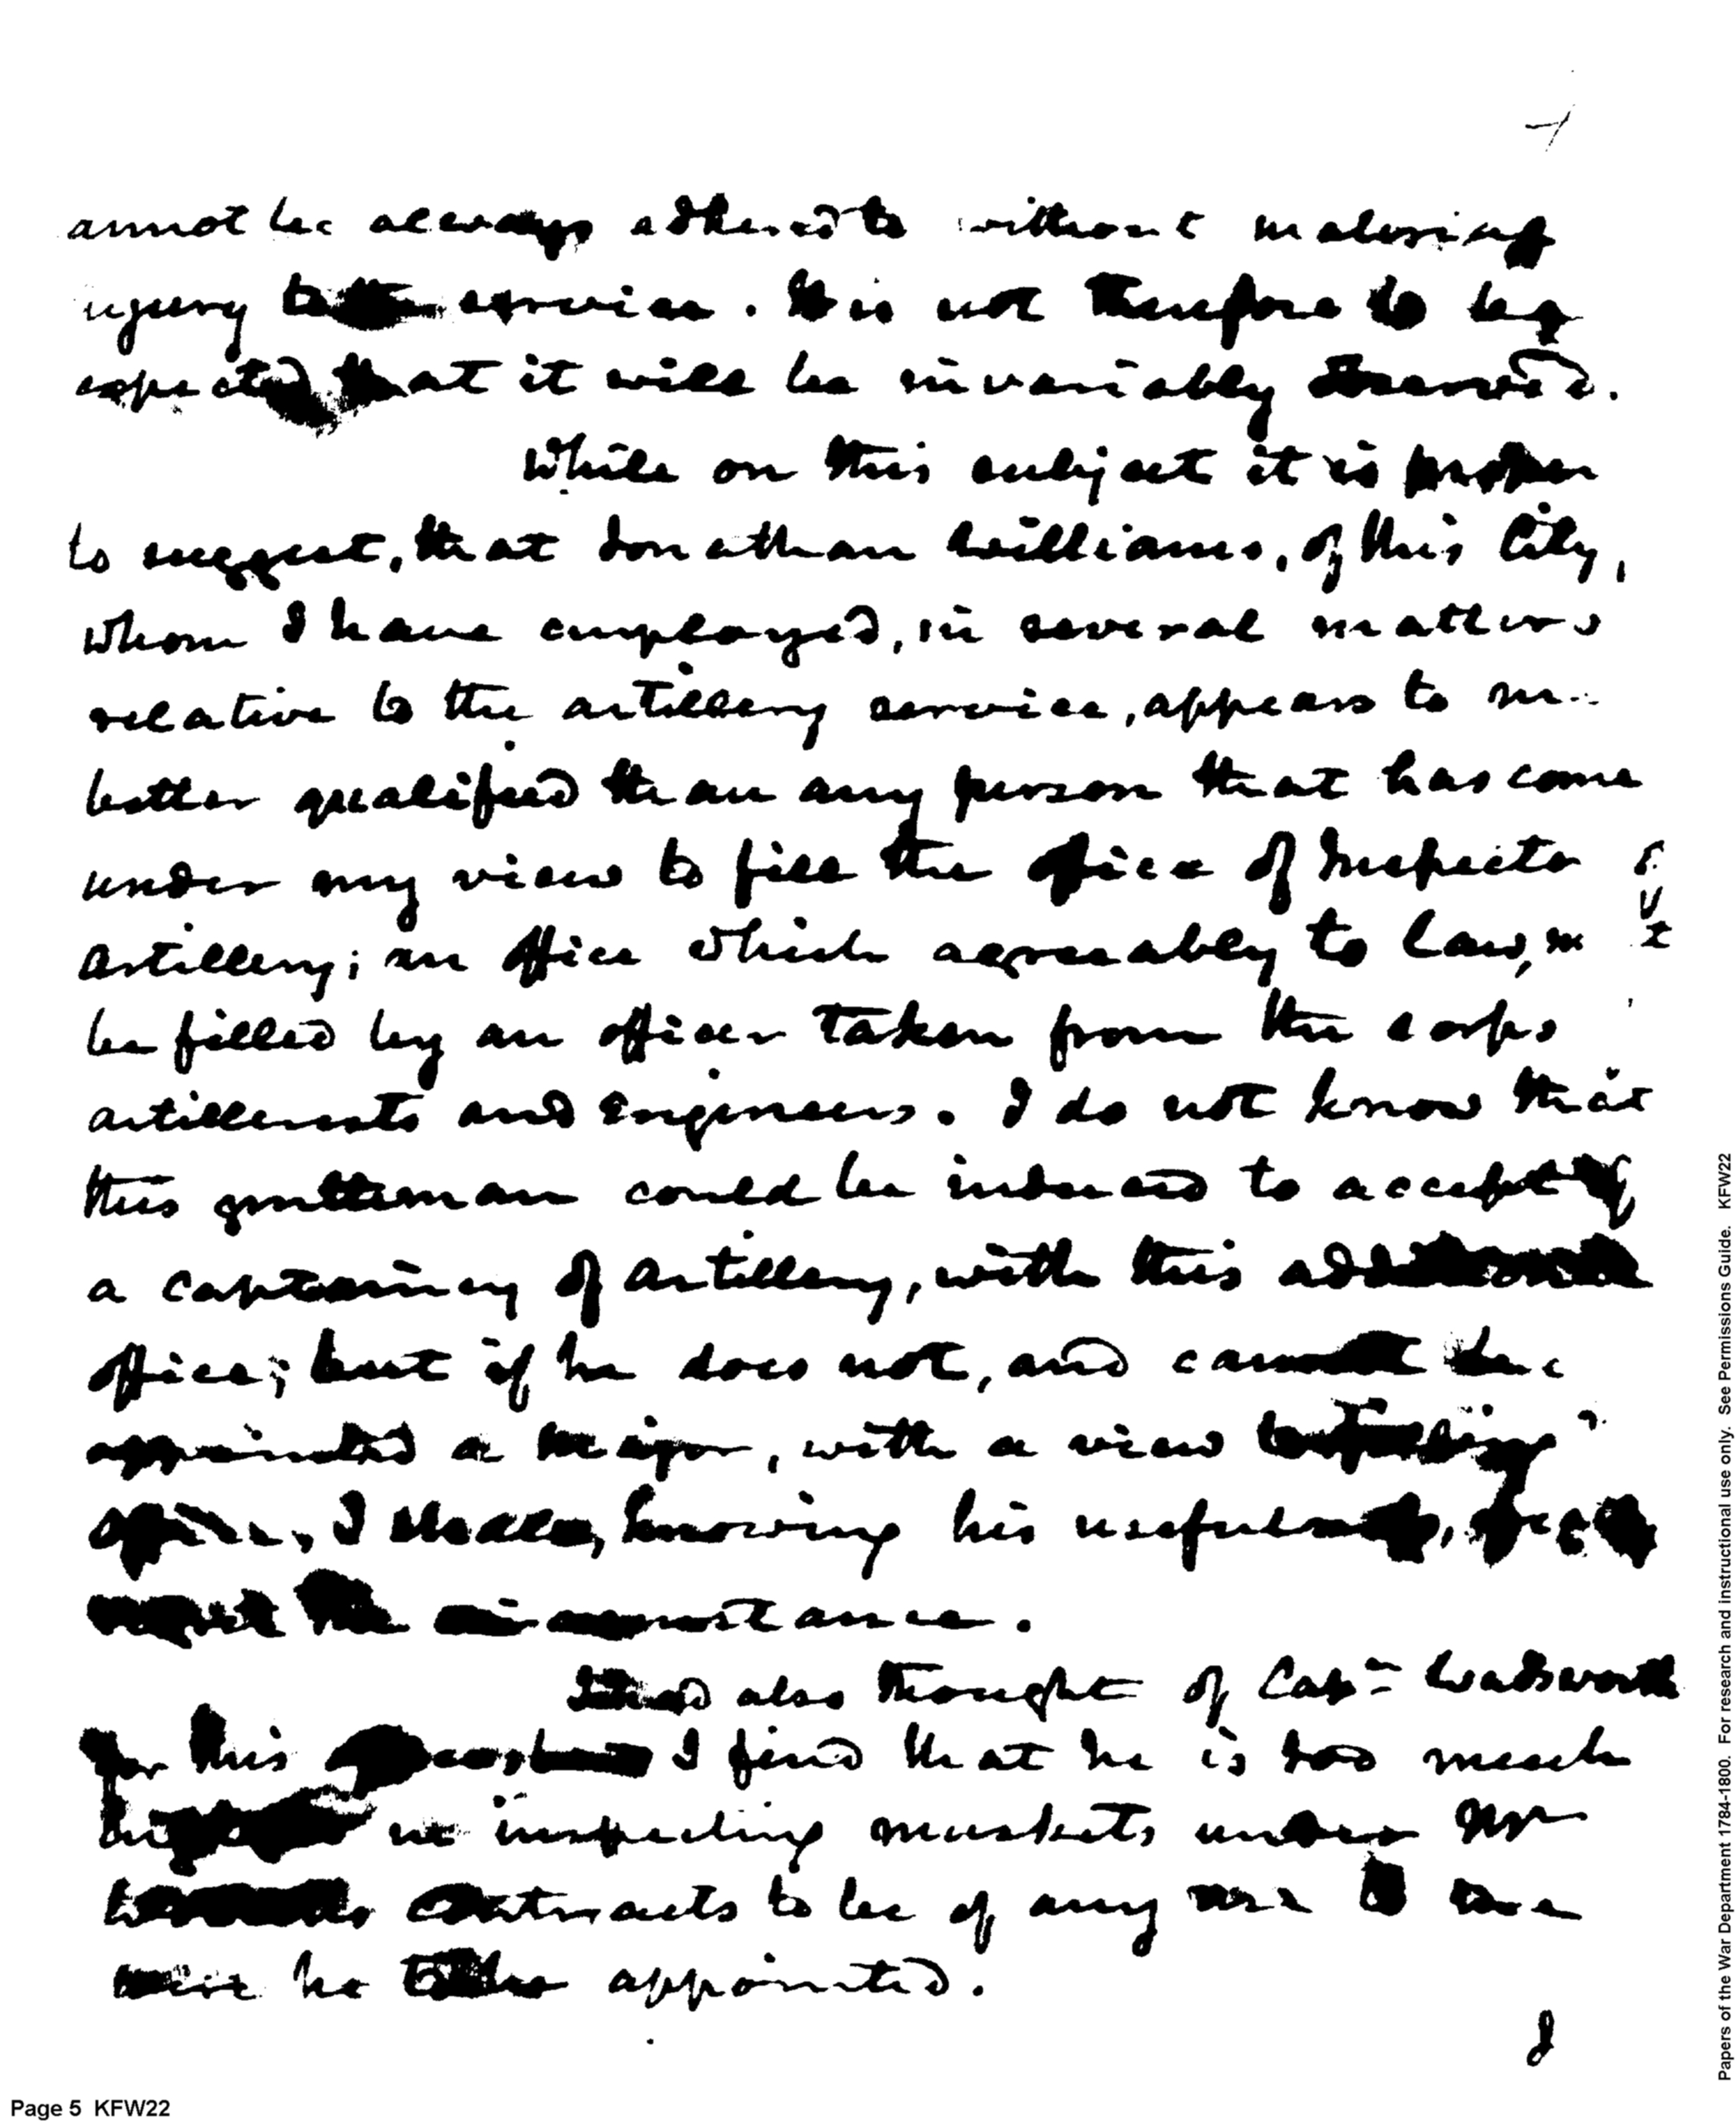 annot be always adhered to without material
njury to the service. It is not therefore to be
expected that it will be invariably
While on this subject it is proper
to suggest, that Jonathan Williams, of this City,
whom I have employed, in several matters
relative to the artillery service, appears to m
better qualified than any person that has come
under my view to fill the office of Inspecto
artillery; an office which agreeably to Law, m
be filled by an officer taken from the corps
artillerists and Engineers. I do not know that
this gentleman could be induced to accept of
a captaincy of artillery, with this additional
office; but if he does not, and cannot be
appointed a major, with a view to
office, I shall, knowing his usefulness,
regret the circumstance.
I had also thought of Capn Wadsworth
for this I find that he is too much
in inspecting muskets under
contracts to be of any use to me
were he to be appointed.
I
Page 5 KFW22
Papers of the War Department 1784-1800. For research and instructional use only. See Permissions Guide. KFW22